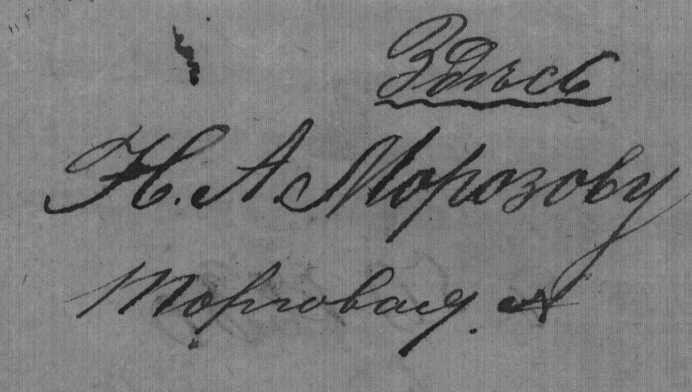 Здѣсь
Н. А. Морозову
Торговая, 4